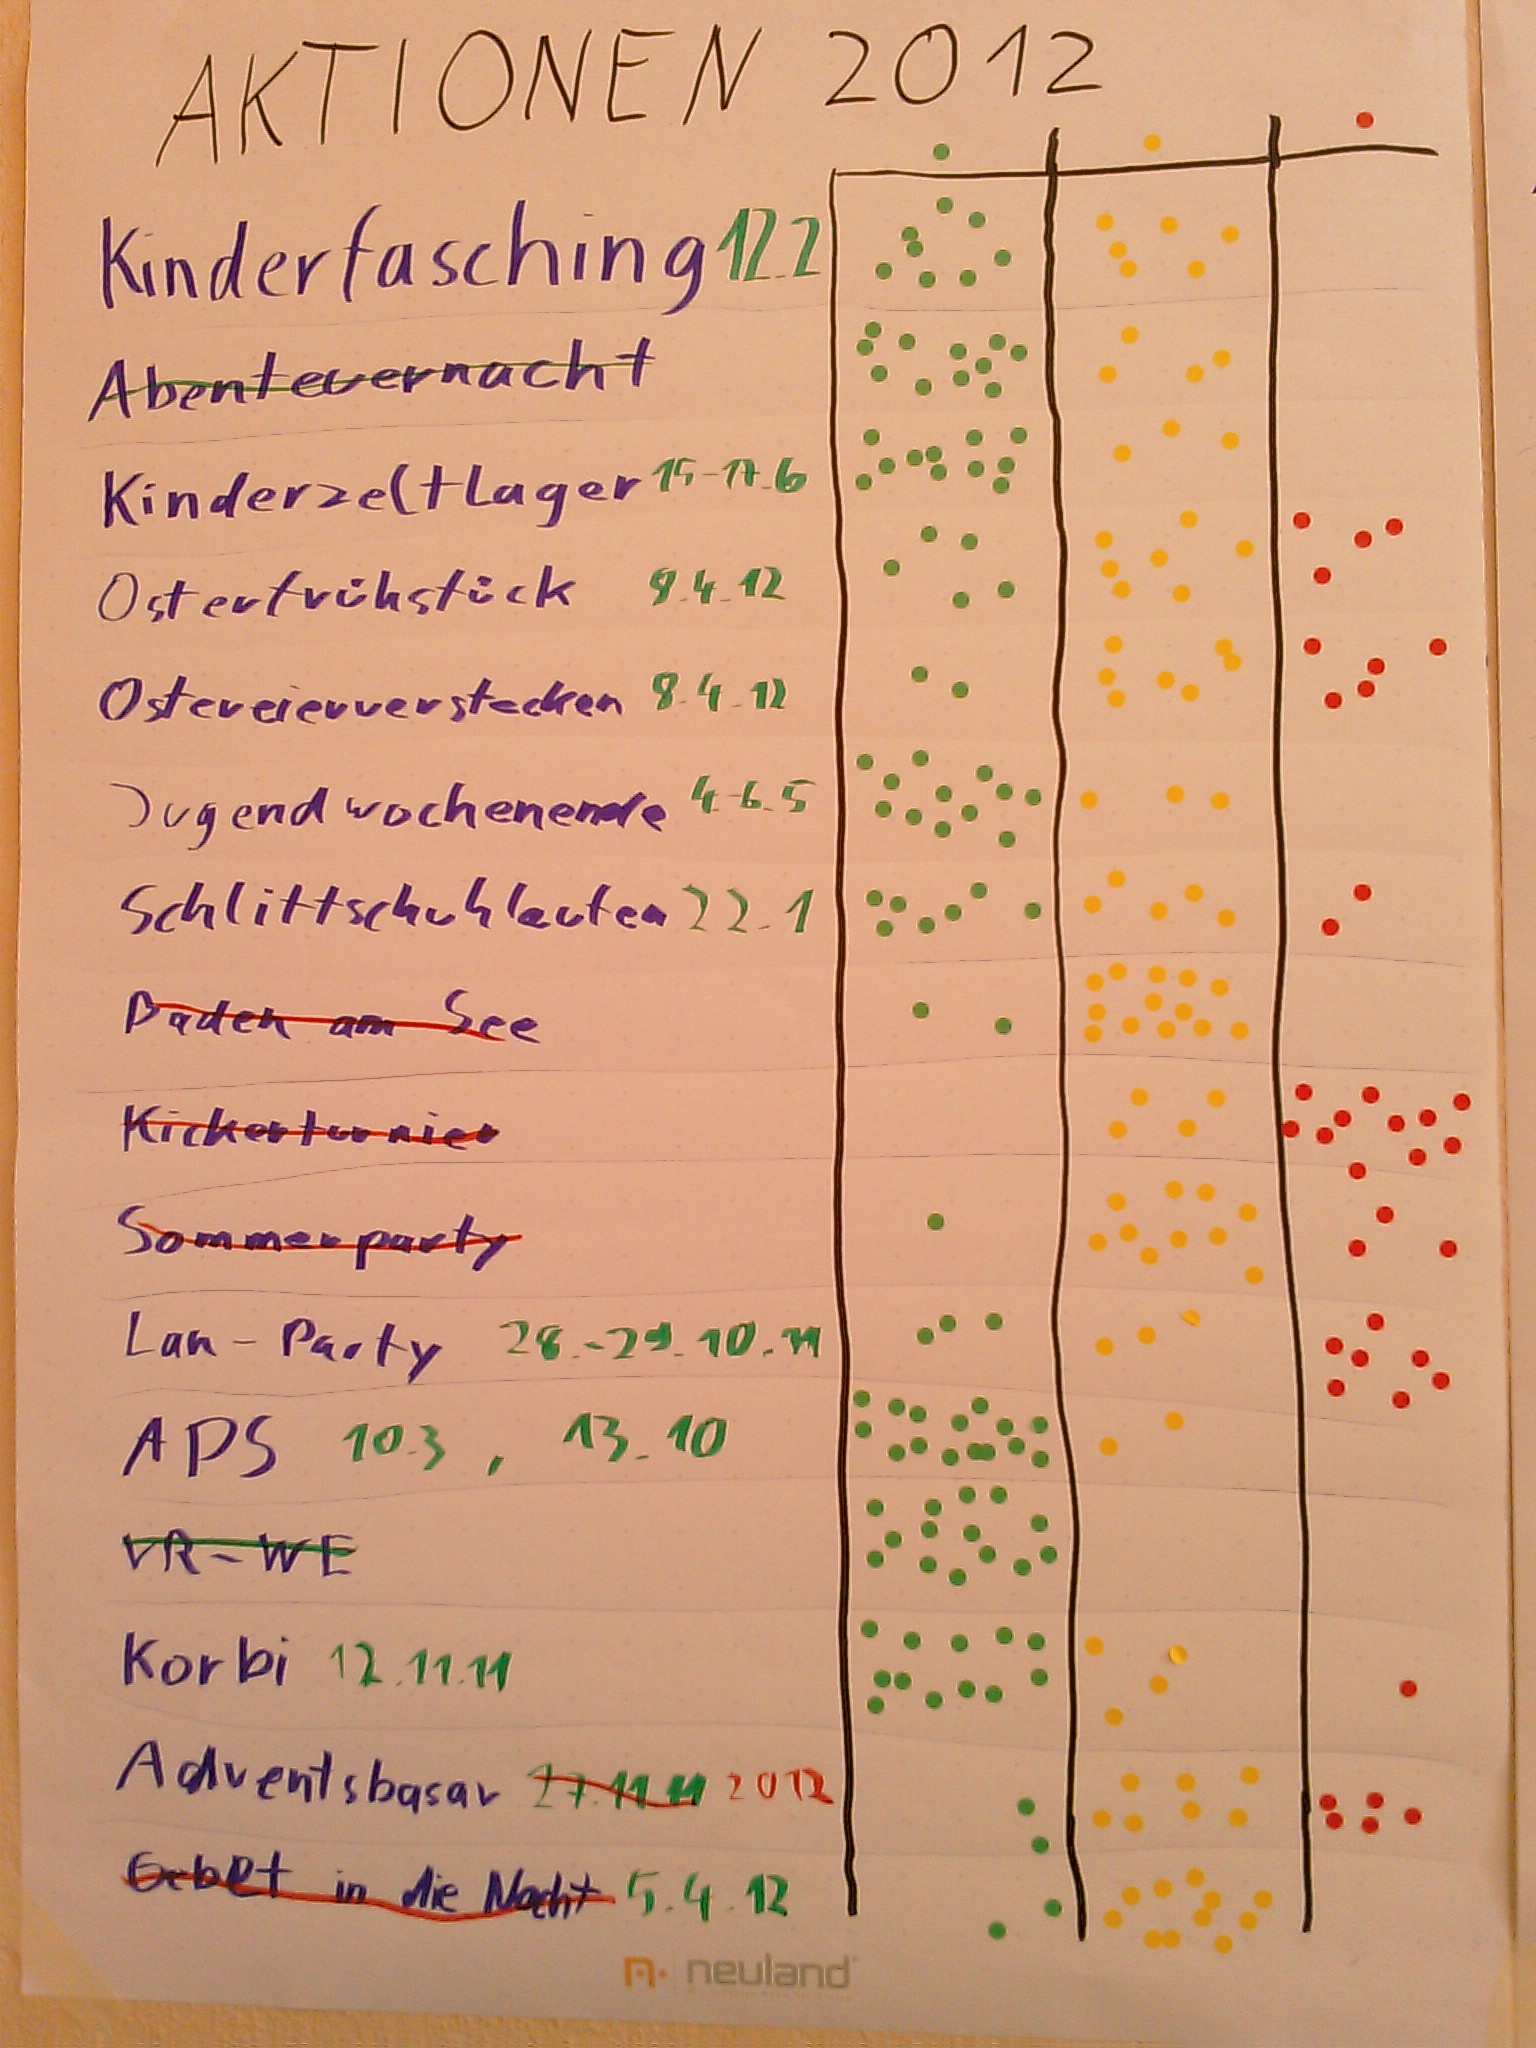 AKTIONEN 2012
Kinderfasching 12.2
Abenteuernacht
Kinderzeltlager 15-17.6
Osterfrühstück 8.4.12
Ostereierverstecken 8.4.12
Jugendwochenende 4-6.5
Schlittschuhlaufen 22.1
Baden am See
Kickerturnier
Sommerparty
Lan-Party 28.-29.10.11
APS 10.3, 13.10
VR-WE
Korbi 12.11.11
Adventsbasar 27.11.11 2012
Gebet in die Nacht 5.4.12
neuland